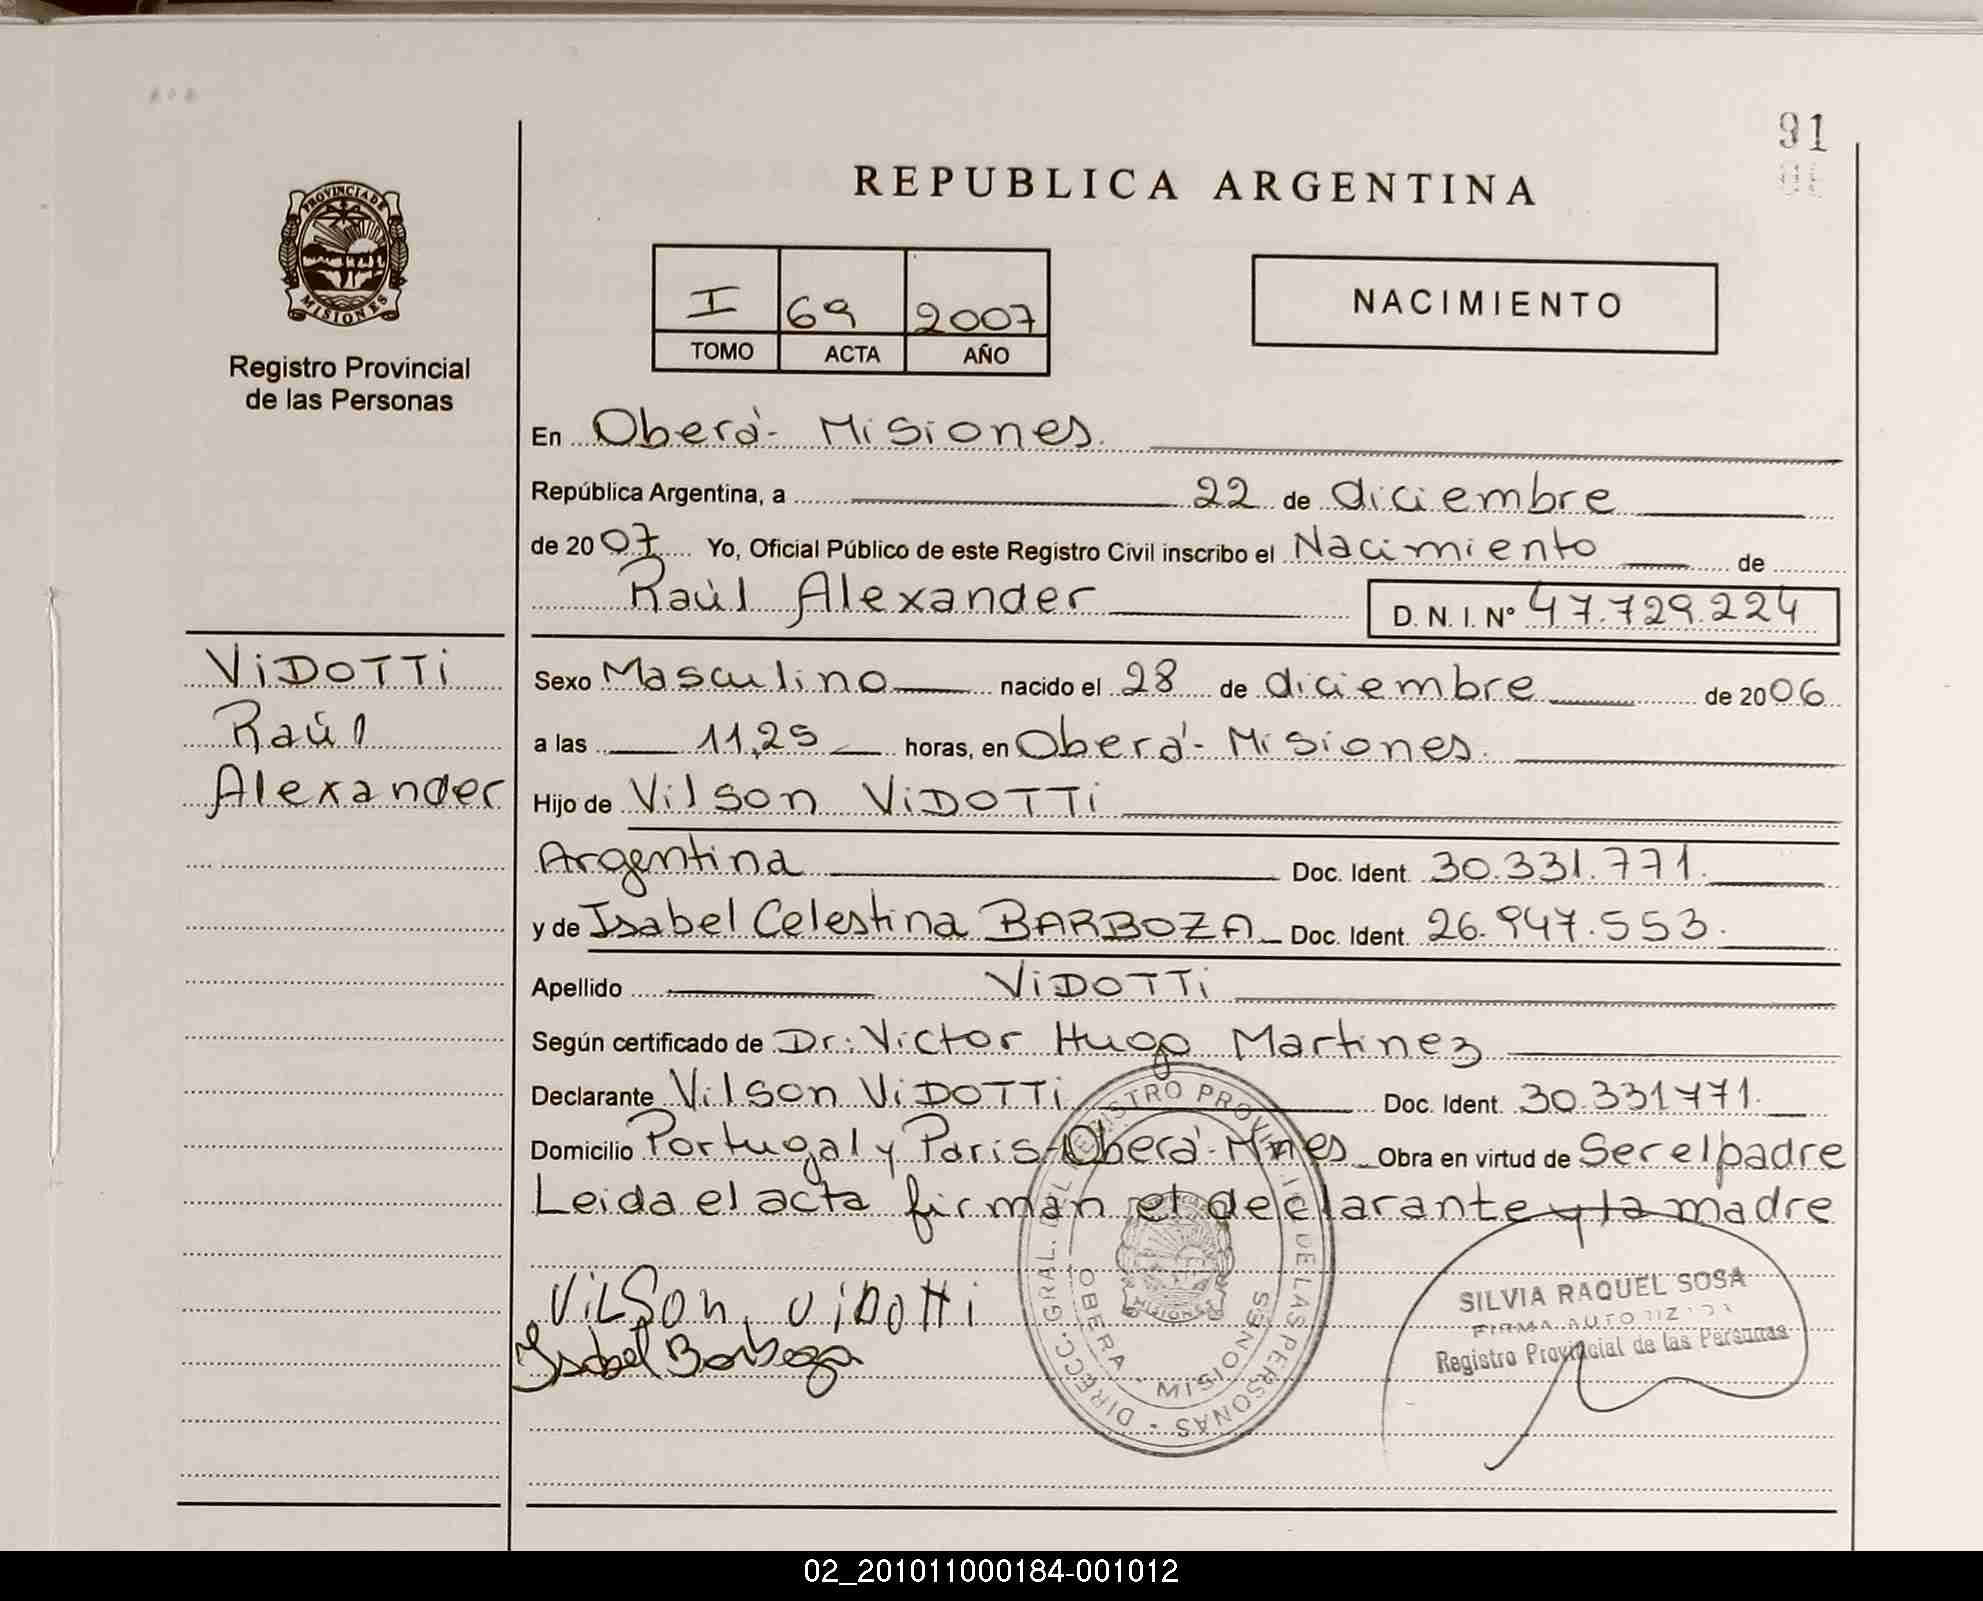 91
PROVINCIA DE
MISIONES
Registro Provincial
de las Personas
REPUBLICA ARGENTINA
I 69 2007
TOMO ACTA AÑO
NACIMIENTO
En Oberá - Misiones.
República Argentina, a 22 de diciembre
de 2007 Yo, Oficial Público de este Registro Civil inscribo el Nacimiento de
Raúl Alexander D. N. I. Nº 47.729.224
VIDOTTI
Raúl
Alexander
Sexo Masculino nacido el 28 de diciembre de 2006
a las 11,25 horas, en Oberá - Misiones.
Hijo de Vilson VIDOTTI
Argentina Doc. Ident. 30.331.771.
y de Isabel Celestina BARBOZA Doc. Ident. 26.947.553.
Apellido VIDOTTI
Según certificado de Dr: Victor Hugo Martinez
Declarante Vilson VIDOTTI Doc. Ident. 30.331771.
Domicilio Portugal y Paris - Oberá - Mnes Obra en virtud de Ser el padre
Leida el acta firman el declarante y la madre
Vilson Vidotti
Isabel Barboza
DIRECC. GRAL. DEL REGISTRO PROVINCIAL DE LAS PERSONAS
OBERA MISIONES
SILVIA RAQUEL SOSA
FIRMA AUTORIZADA
Registro Provincial de las Personas
02_201011000184-001012